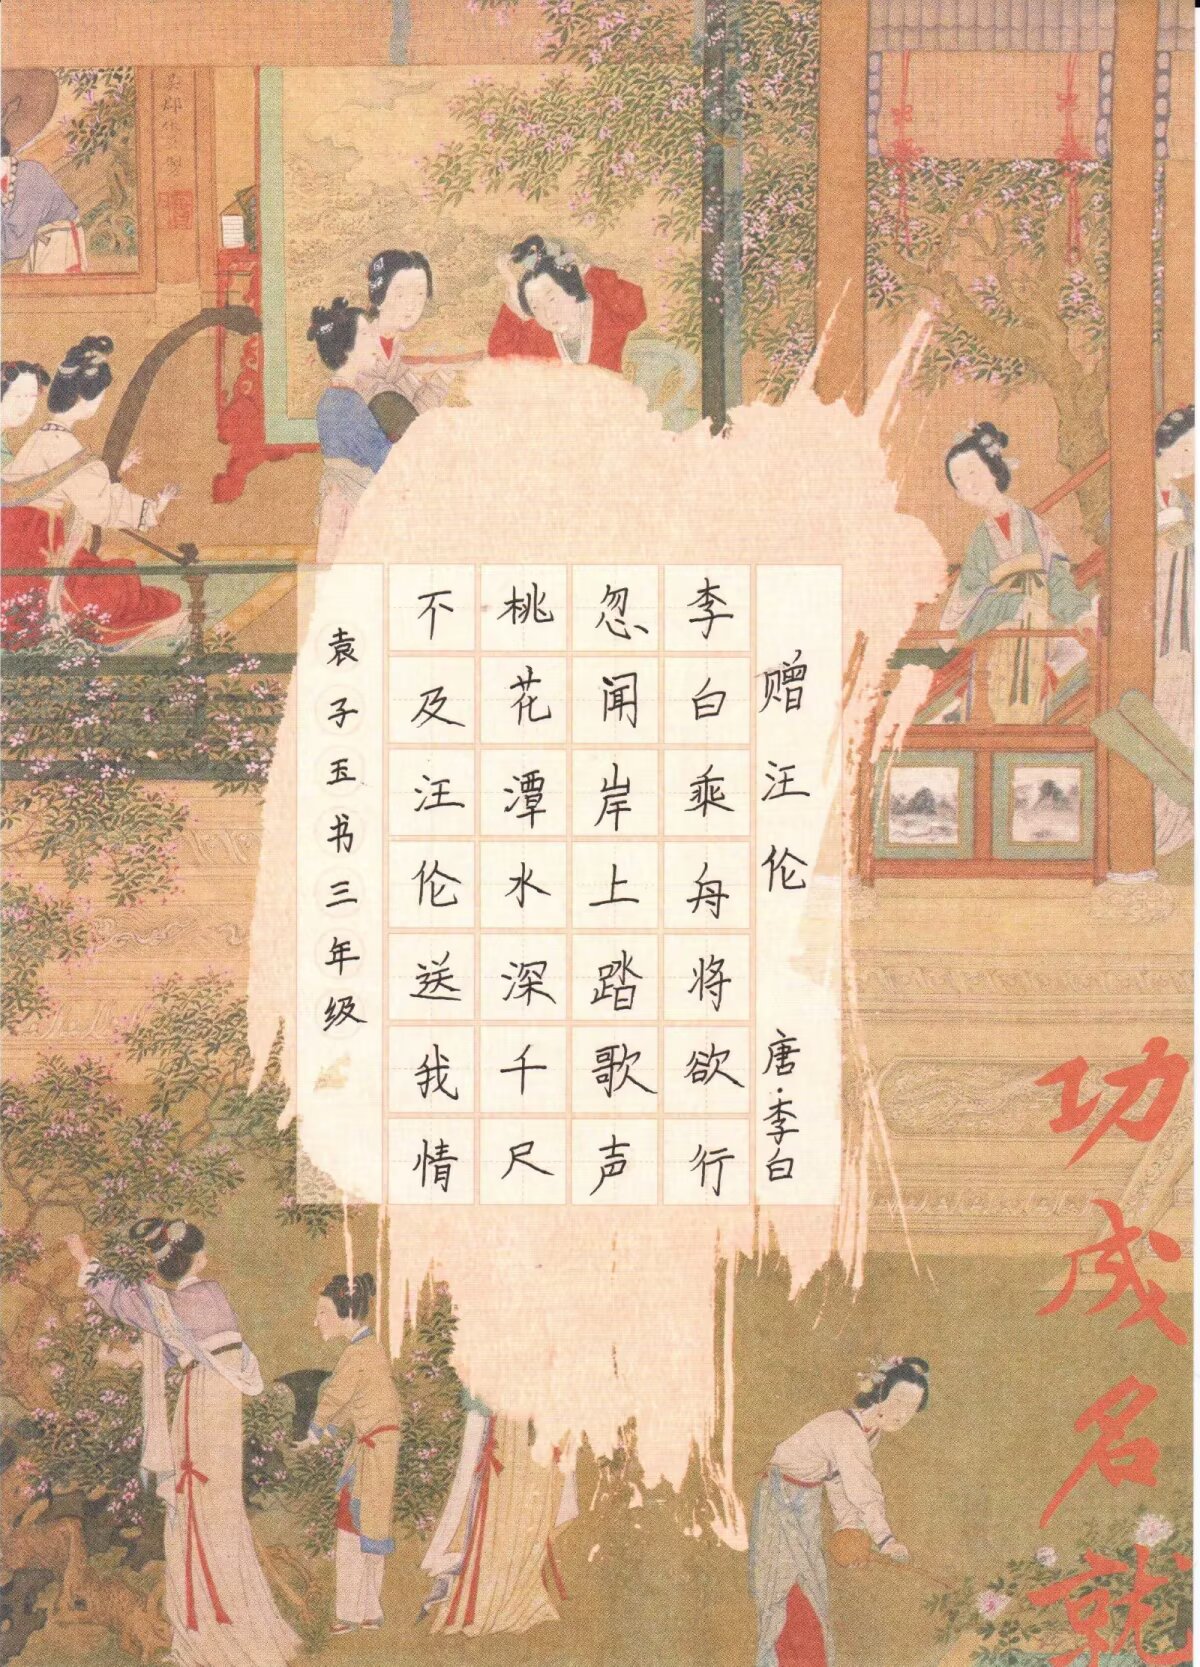 赠汪伦 唐·李白
李白乘舟将欲行
忽闻岸上踏歌声
桃花潭水深千尺
不及汪伦送我情
袁子玉书三年级
功成名就